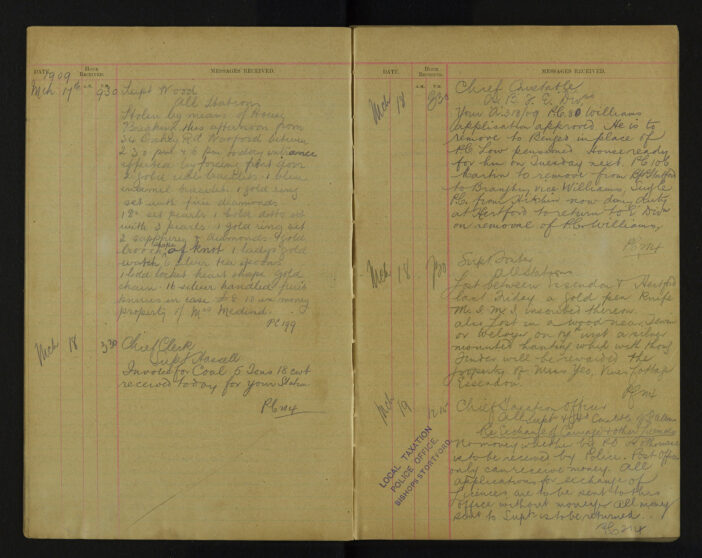 DATE. HOUR RECEIVED. MESSAGES RECEIVED.
1909 A.M. P.M.
Mch 17th 9 30 Supt Wood
All Stations
Stolen by means of House
Breaking this afternoon from
Rd Watford between
2.30 pm & 6 pm today entrance
effected by forcing front door
2 gold bracelets 1 blue
enamel bracelet 1 gold ring
set with five diamonds
set pearls 1 gold ditto set
with 3 pearls 1 gold ring set
2 sapphires & diamonds gold
brooch shape of knot 1 ladys gold
watch 6 silver tea spoons
1 gold locket heart shape gold
chain 16 silver handled fruit
knives in case & 8 10 in money
property of Mrs
PC 199
Mch 18 3 30 Chief Clerk
Supt
Invoice for Coal 5 Tons 18 cwt
received today for your Station
PC
DATE. HOUR RECEIVED. MESSAGES RECEIVED.
A.M. P.M.
Mch 18 8 30 Chief Constable
E. Divn
Your 18/09 PC 80 Williams
application approved. He is to
remove to in place of
PC Low pensioned. House ready
for him on Tuesday next. PC 106
Martin to remove from
to vice Williams, Single
PC. from Hitchin now doing duty
at Hertford to return to E Divn
on removal of PC Williams.
PC
Mch 18 7 30 Supt
All Stations
Lost between Essendon & Hertford
last Friday a Gold pen Knife
M. S. M. S inscribed thereon.
also Lost in a wood near
or Welwyn on 17th inst a silver
mounted hunting whip with thong
Finder will be rewarded the
property of Miss Yeo,
Essendon.
PC
Mch 19 12 15 Chief Taxation Officer
All Supts &
Re Exchange of Carriage & other Licences
No money whether by P.O. or otherwise
is to be received by Police. Post Office
only can receive money. All
applications for exchange of
Licences are to be sent to this
office without money. All money
sent to Supts is to be returned.
PC
LOCAL TAXATION
POLICE OFFICE
BISHOPS STORTFORD